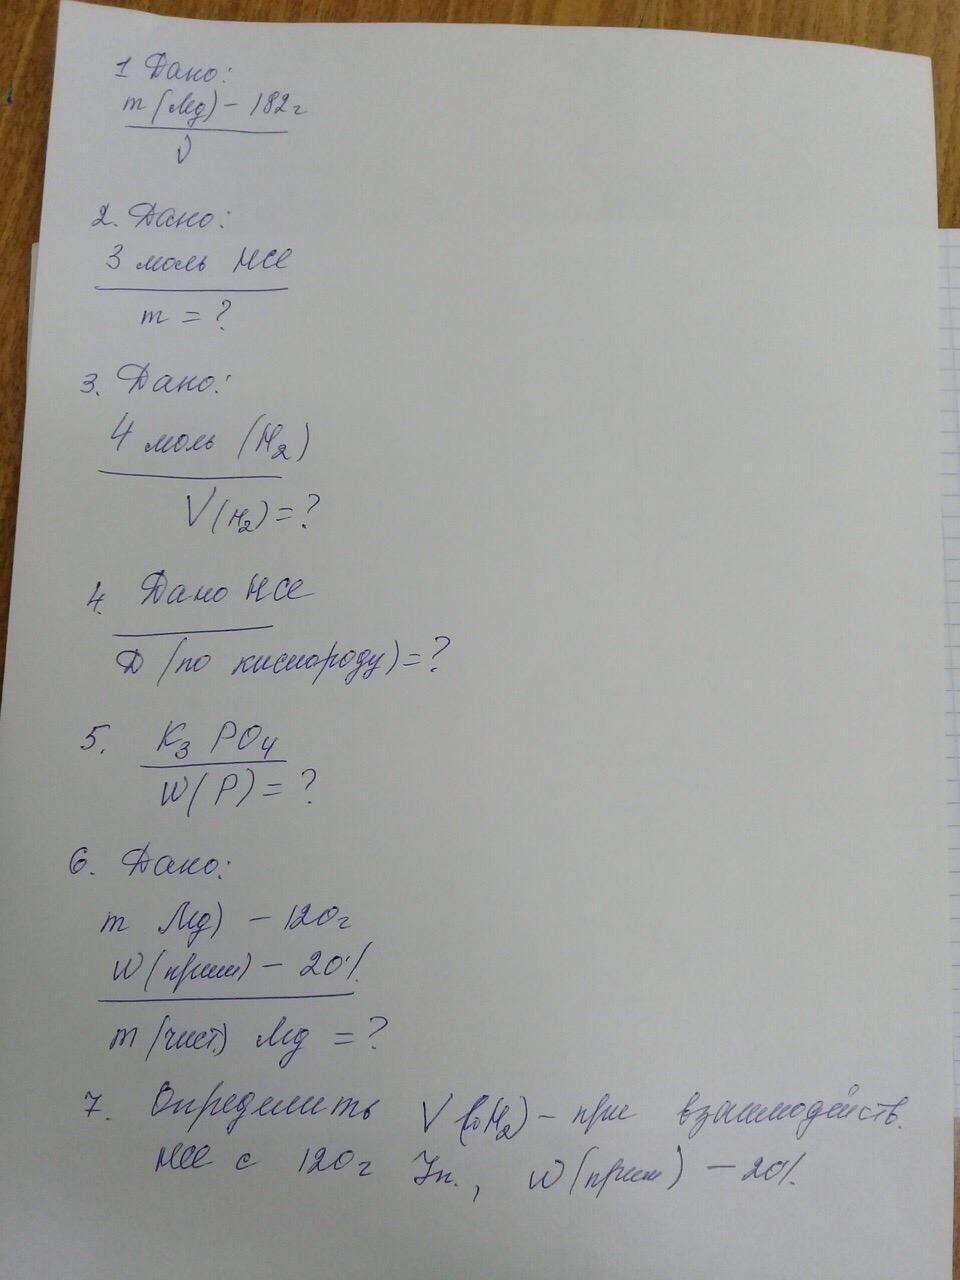 1 Дано:
m (Mg) – 182г
ν
2. Дано:
3 моль HCl
m = ?
3. Дано:
4 моль (H₂)
V(H₂) = ?
4. Дано HCl
D (по кислороду) = ?
5. K₃PO₄
W(P) = ?
6. Дано:
m Mg) – 120г
W(прим) – 20%
m (чист.) Mg = ?
7. Определить V (H₂) – при взаимодейств.
HCl с 120г Zn., W(прим) – 20%.